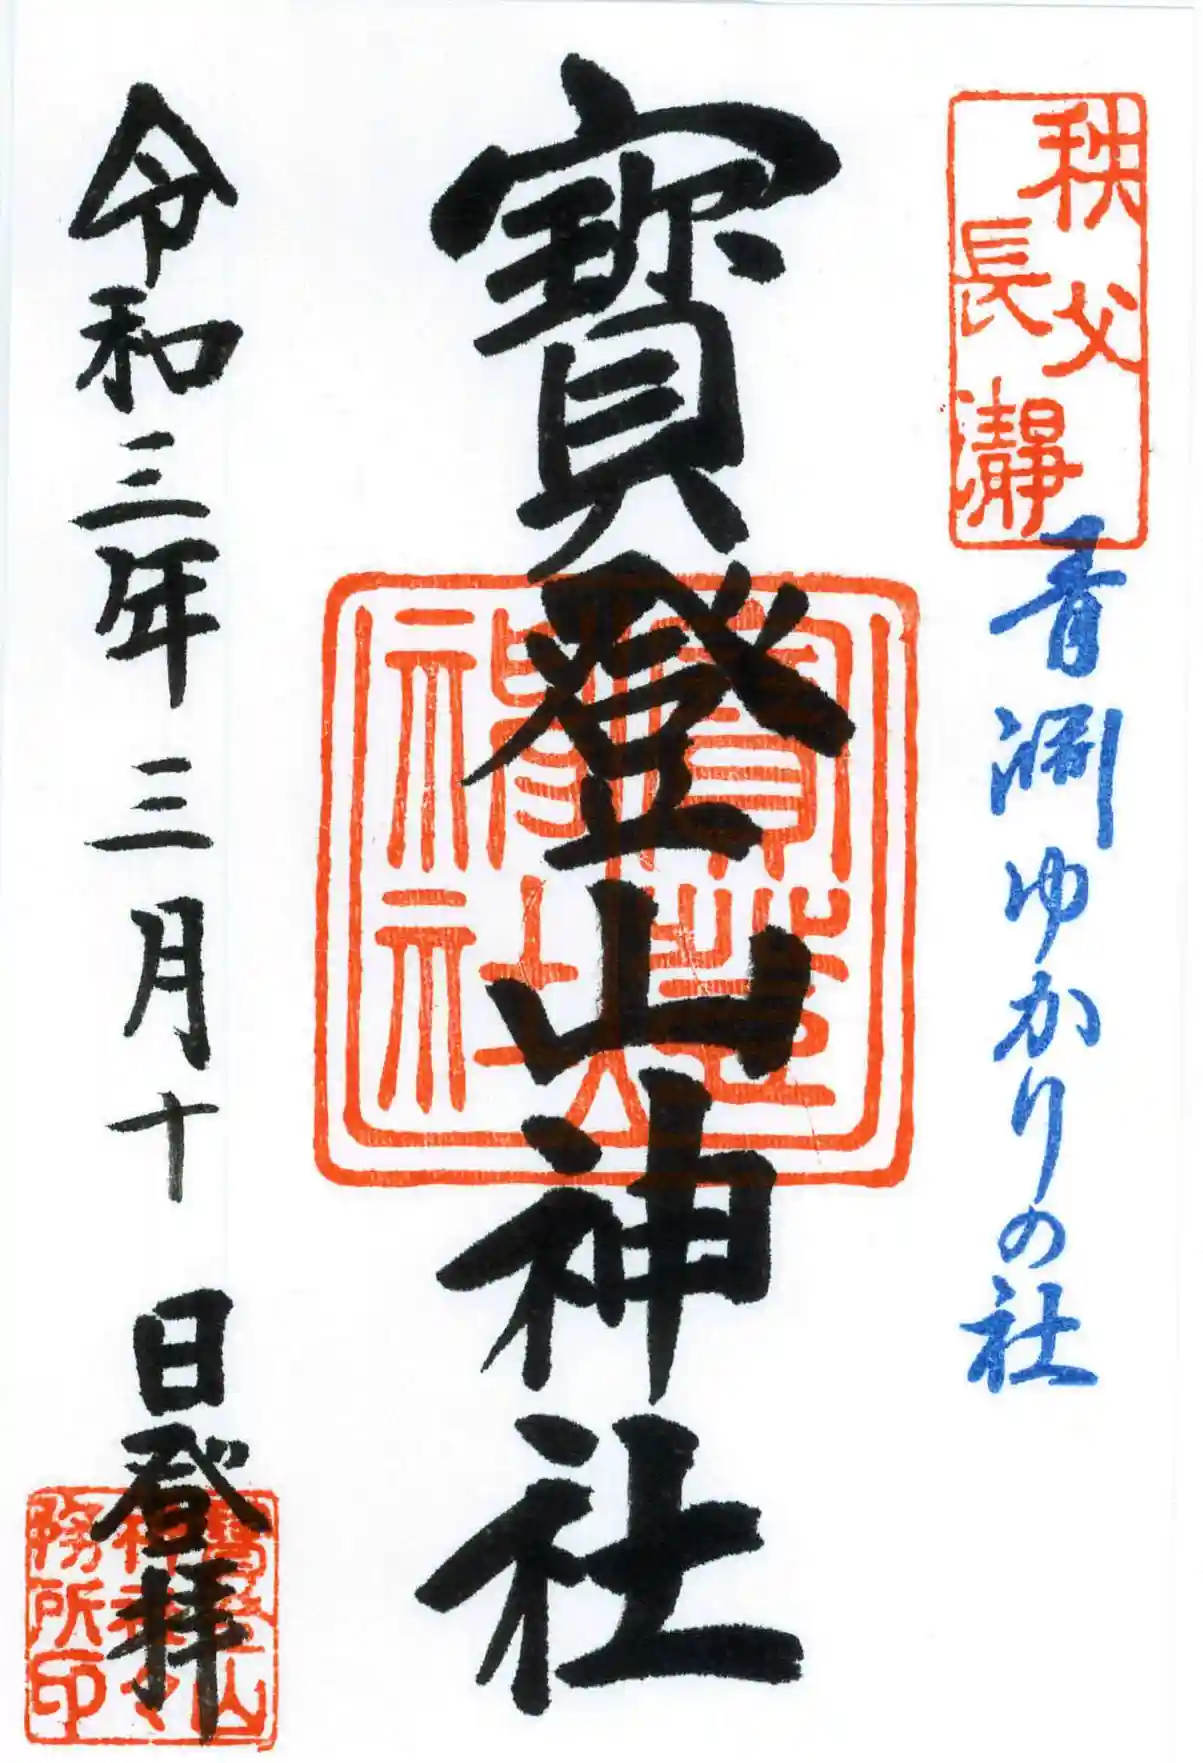 秩父
長瀞
青淵ゆかりの社
寶登山神社
寶登
神社
令和三年三月十日登拝
寶登山
神社々
務所印